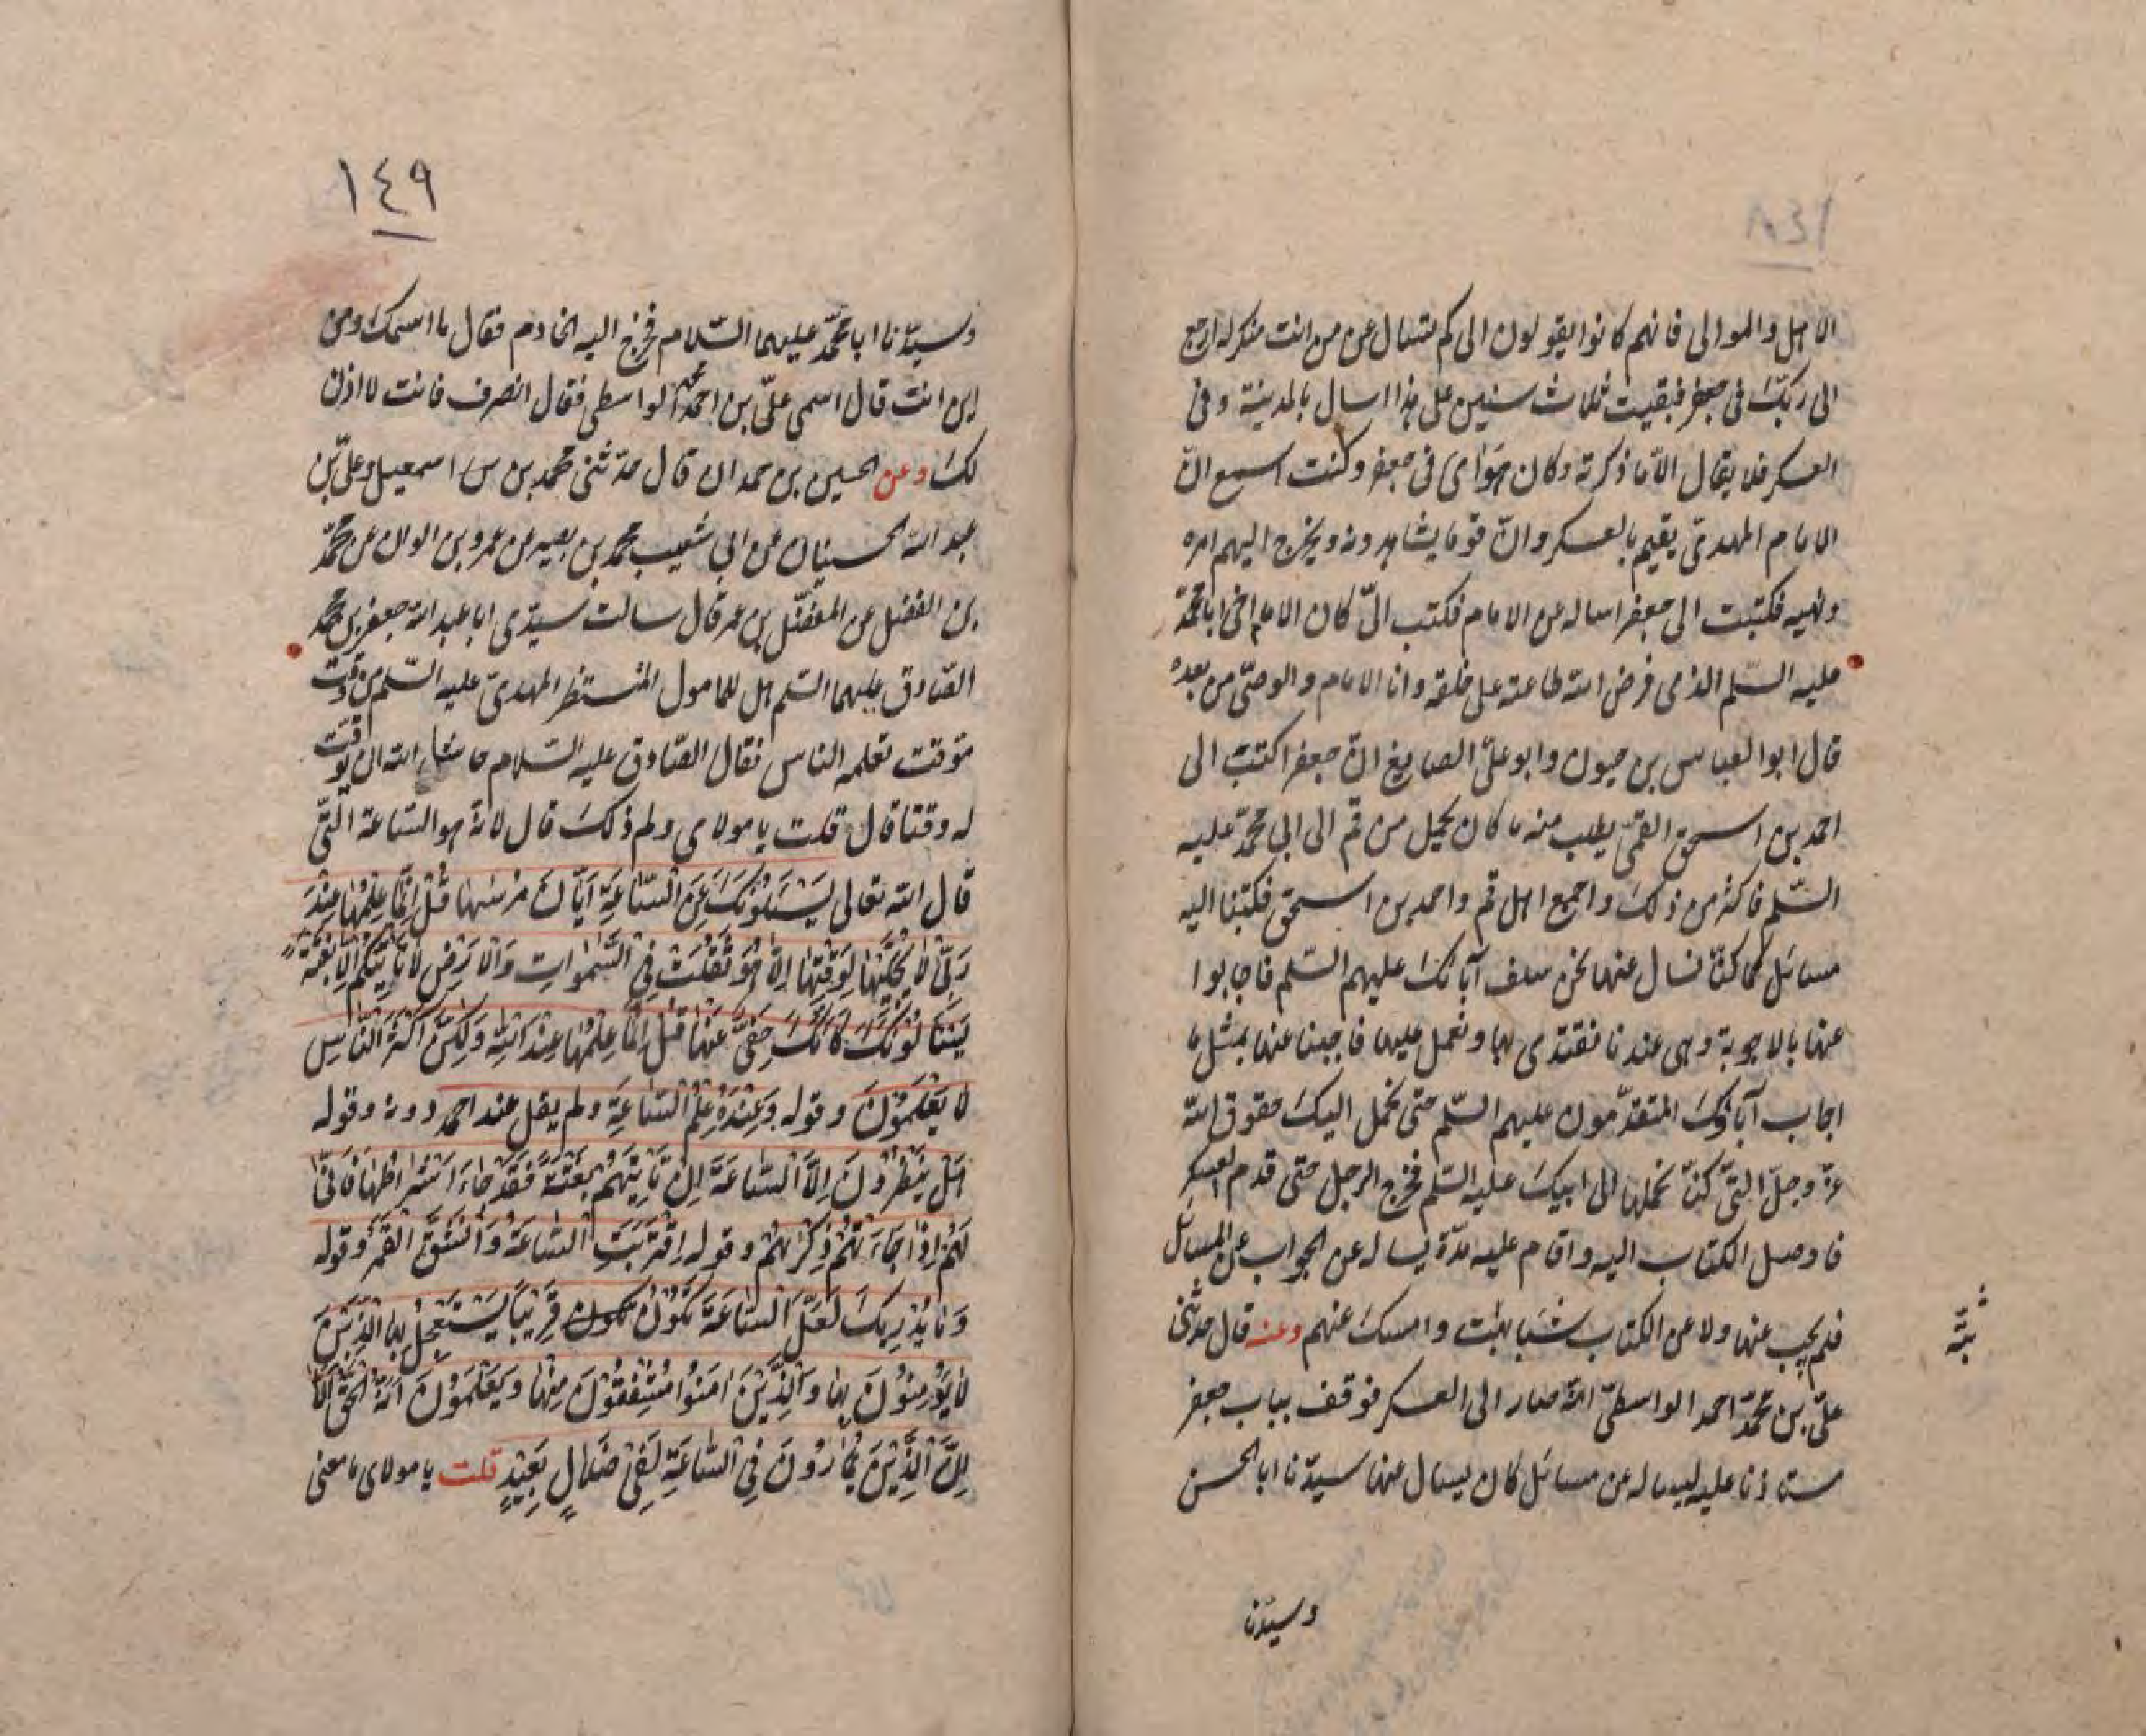 ١٤٨
الاهل والموالى فانهم كانوا يقولون الى كم تسال عن من انت منكر له ارجع
الى ربّك فى جعفر فبقيت ثلاث سنين على هذا اسال بالمدينة وفى
العسكر فلا يقال الّا ما ذكرته وكان هواى فى جعفر وكنت اسمع انّ
الامام المهدىّ يقيم بالعسكر وانّ قوما يشاهدونه ويخرج اليهم امره
ونهيه فكتبت الى جعفر اساله عن الامام فكتب الىّ كان الامام اخى ابا محمّد
عليه السّلم الذى فرض الله طاعته على خلقه وانا الامام والوصىّ من بعده
قال ابو العباس بن حيون وابو علىّ الصايغ انّ جعفرا كتب الى
احمد بن اسحق القمّى يطلب منه ما كان يحمل من قم الى ابى محمّد عليه
السّلم فاكثر من ذلك واجمع اهل قم واحمد بن اسحق فكتبنا اليه
مسائل كما كنّا نسال عنها نحن سلف آبائك عليهم السّلم فاجابوا
عنها بالاجوبة وهى عندنا نقتدى بها ونعمل عليها فاجبنا عنها بمثل ما
اجاب آباؤك المتقدّمون عليهم السّلم حتى نحمل اليك حقوق الله
عزّ وجلّ التىّ كنّا نحملها الى ابيك عليه السّلم فخرج الرجل حتى قدم العسكر
فاوصل الكتاب اليه واقام عليه مدّة يساله عن الجواب عن المسائل
فلم يجب عنها ولا عن الكتاب شيئا بتّة وامسك عنهم وعنه قال حدّثنى
بتّة
علىّ بن محمّد احمد الواسطىّ انّه صار الى العسكر فوقف بباب جعفر
مستاذنا عليه ليساله عن مسائل كان يسال عنها سيدّنا ابا الحسن
وسيّدنا
١٤٩
وسيّدنا ابا محمّد عليهما السّلام فخرج اليه الخادم فقال ما اسمك ومن
اين انت قال اسمى علىّ بن احمد الواسطى فقال انصرف فانت لا اذن
لك وعن الحسين بن حمدان قال حدّثنى محمد بن اسمعيل وعلىّ بن
عبد الله الحسنيان عن ابى شعيب محمد بن بصير عن عمرو بن الوان عن محمّد
بن الفضل عن المفضّل بن عمر قال سالت سيدّى ابا عبد الله جعفر بن محمّد
الصّادق عليهما السّلم هل للمامول المنتظر المهدىّ عليه السّلم من وقت
موقت تعلمه الناس فقال الصّادق عليه السّلام حاشا الله ان يوقّت
له وقتا قال قلت يا مولاى ولم ذلك قال لانّه هو السّاعة التىّ
قال الله تعالى يَسْئَلُونَكَ عَنِ السّاعَةِ اَيّانَ مُرْسٰيها قُلْ اِنَّما عِلْمُها عِنْدَ
رَبّى لا يُجَلّيها لِوَقْتِها اِلّا هُوَ ثَقُلَتْ فِى السَّمٰواتِ وَالْاَرْضِ لا يَاْتِيكُمْ اِلّا بَغْتَةً
يَسْئَلُونَكَ كَاَنَّكَ حَفِىٌّ عَنْها قُلْ اِنَّما عِلْمُها عِنْدَ اللّٰهِ وَلٰكِنَّ اَكْثَرَ النّاسِ
لا يَعْلَمُونَ وقوله وَعِنْدَهُ عِلْمُ السّاعَةِ ولم يقل عند احمد دونه وقوله
هَلْ يَنْظُرُونَ اِلَّا السّاعَةَ اَنْ تَاْتِيَهُمْ بَغْتَةً فَقَدْ جاءَ اَشْراطُها فَاَنّى
لَهُمْ اِذا جاءَتْهُمْ ذِكْرٰيهُمْ وقوله اِقْتَرَبَتِ السّاعَةُ وَانْشَقَّ الْقَمَرُ وقوله
وَما يُدْرِيكَ لَعَلَّ السّاعَةَ تَكُونُ تكون قَرِيبًا يَسْتَعْجِلُ بِهَا الَّذِينَ
لا يُؤْمِنُونَ بِها وَالَّذِينَ اٰمَنُوا مُشْفِقُونَ مِنْها وَيَعْلَمُونَ اَنَّهُ الْحَقُّ اَلا
اِنَّ الَّذِينَ يُمارُونَ فِى السّاعَةِ لَفِى ضَلالٍ بَعِيدٍ قلت يا مولاى ما معنى